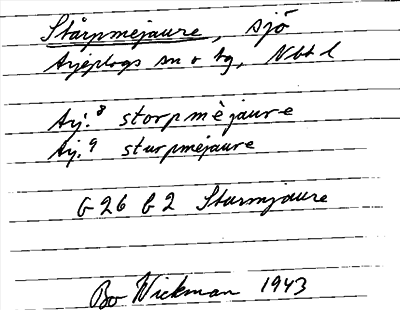 Stårpmejaure, sjö
Arjeplogs sn o tg, Nbt l
Arj.8 storpmèjaure
Arj.9 sturpmejaure
G 26 b 2 Sturmjaure
Bo Wickman 1943